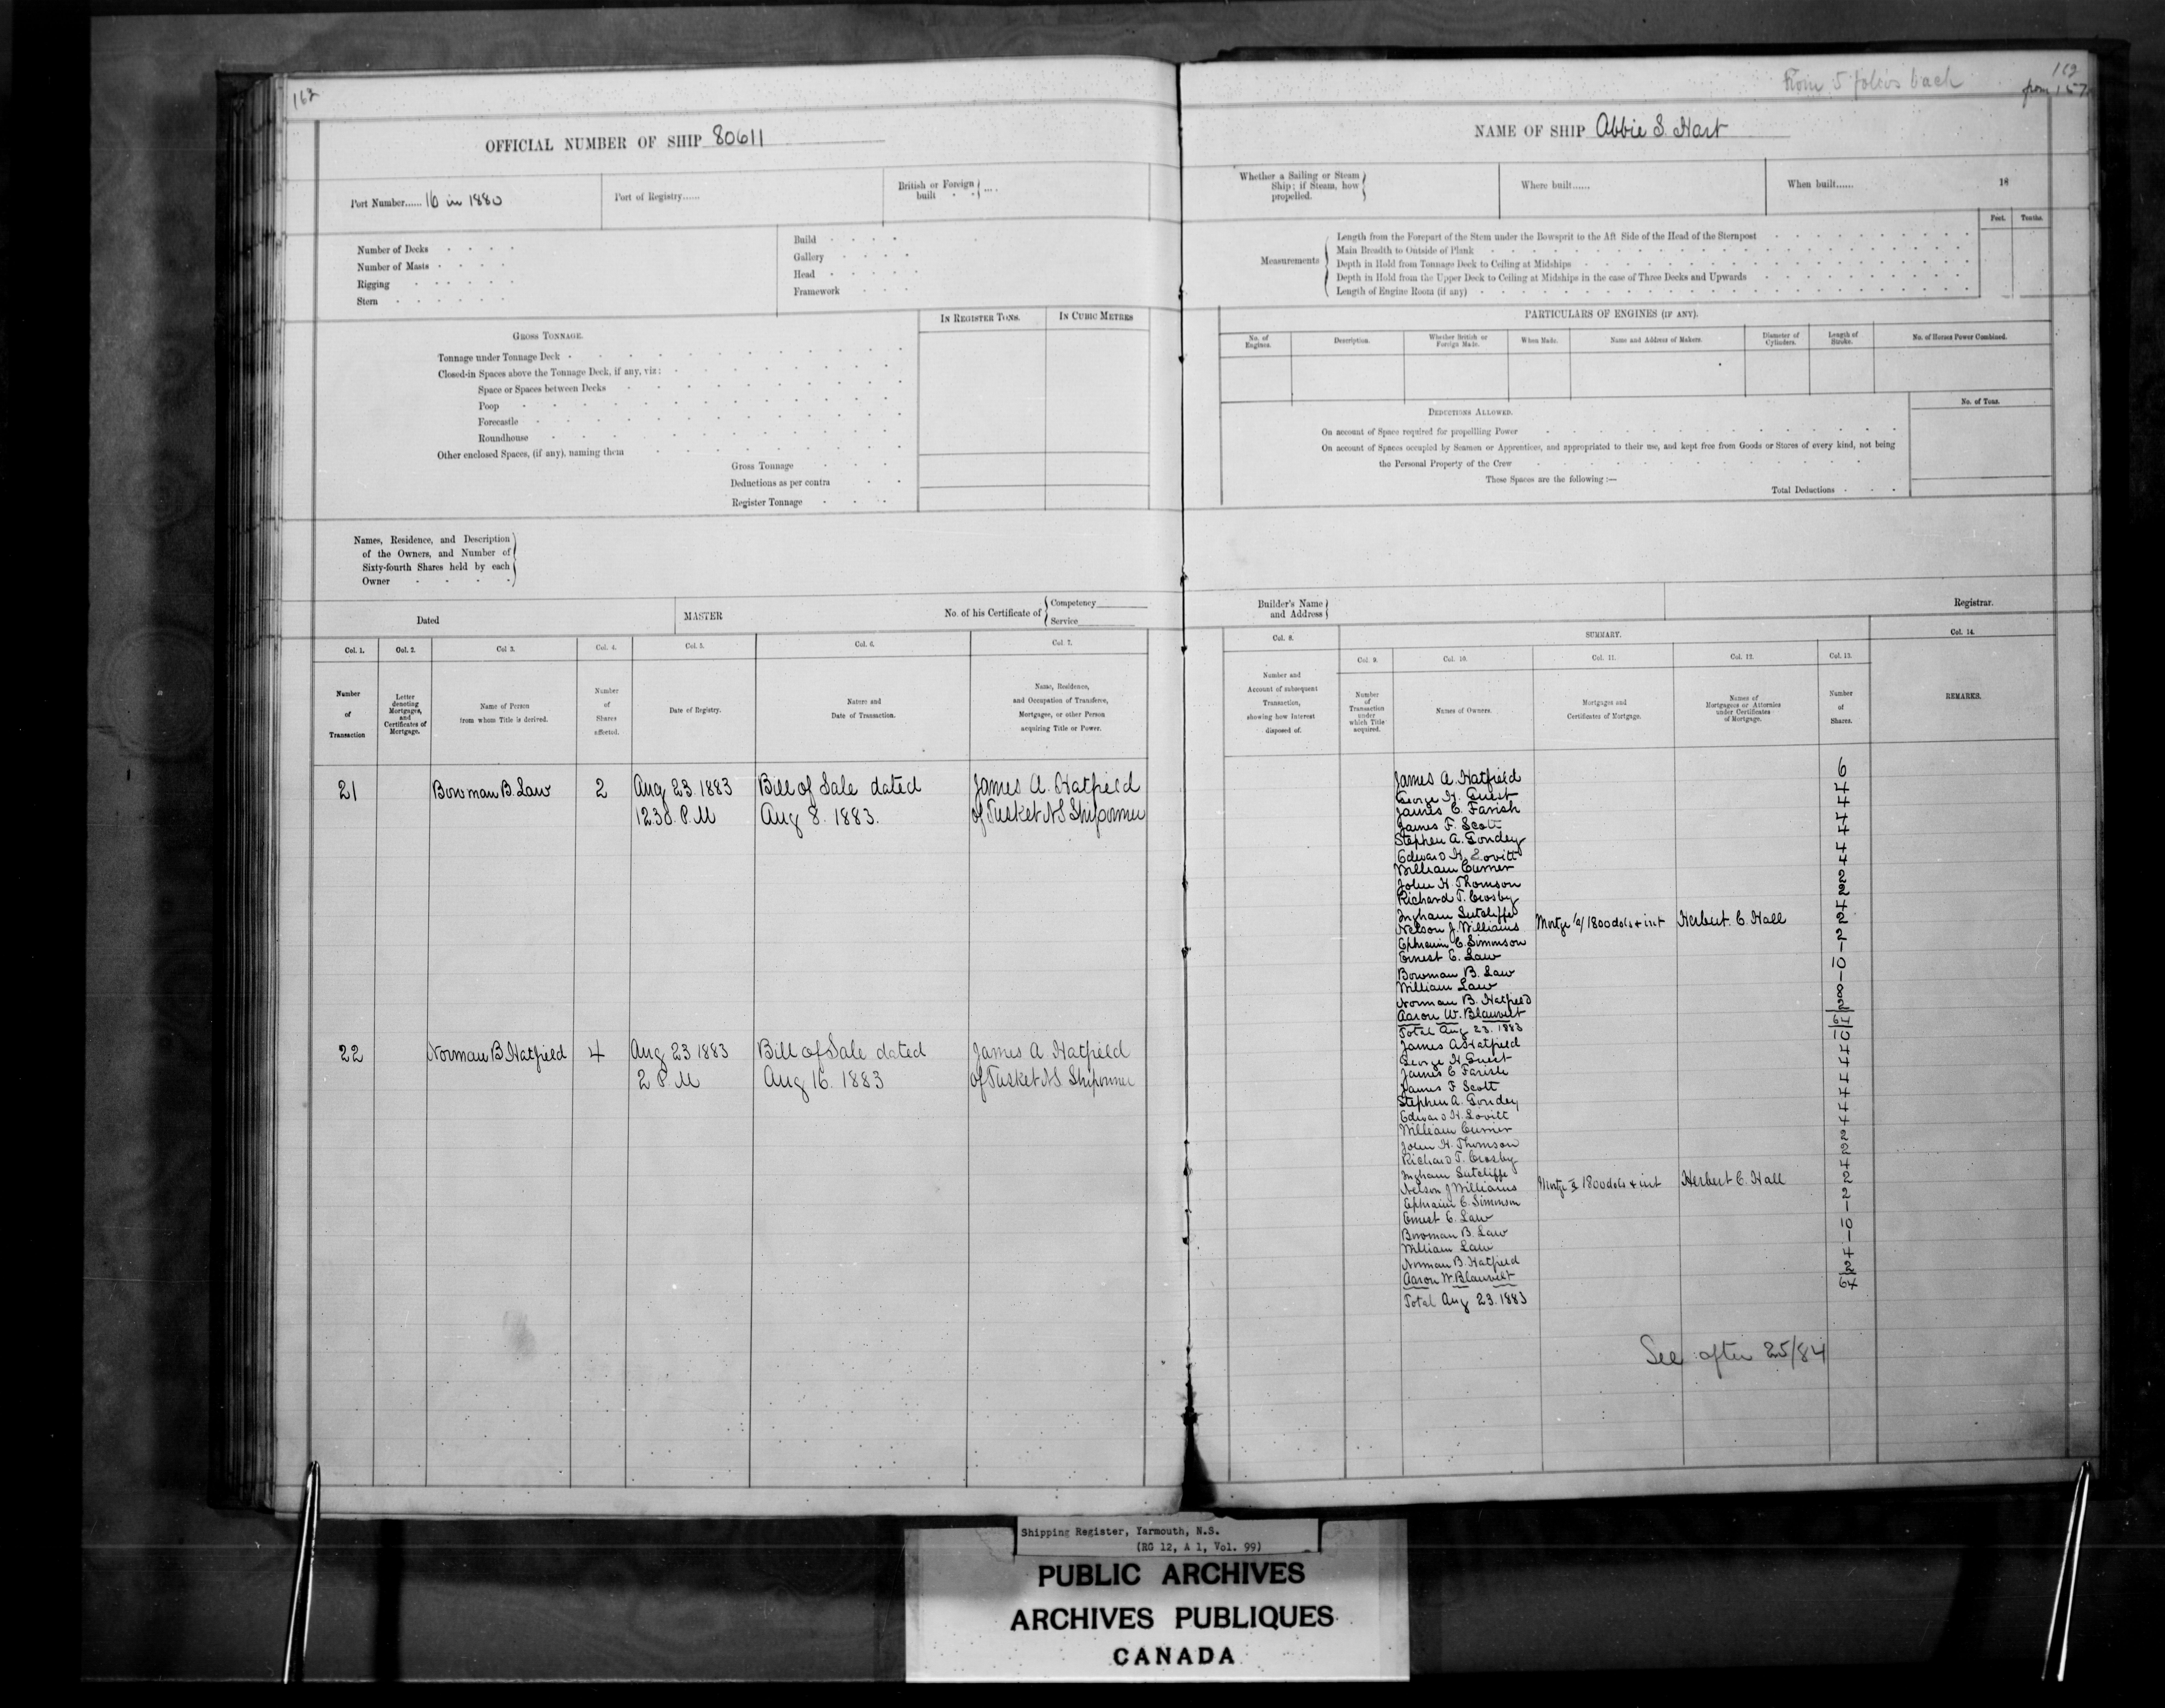 162
OFFICIAL NUMBER OF SHIP 80611
Port Number...... 16 in 1880
Port of Registry......
British or Foreign built
Number of Decks
Number of Masts
Rigging
Stern
Build
Gallery
Head
Framework
IN REGISTER TONS.
IN CUBIC METRES
GROSS TONNAGE.
Tonnage under Tonnage Deck
Closed-in Spaces above the Tonnage Deck, if any, viz:
Space or Spaces between Decks
Poop
Forecastle
Roundhouse
Other enclosed Spaces, (if any), naming them
Gross Tonnage
Deductions as per contra
Register Tonnage
Names, Residence, and Description
of the Owners, and Number of
Sixty-fourth Shares held by each
Owner
Dated
MASTER
No. of his Certificate of
Competency
Service
Col. 1. Col. 2. Col 3. Col. 4. Col. 5. Col. 6. Col. 7.
Number of Transaction
Letter denoting Mortgages, and Certificates of Mortgage.
Name of Person from whom Title is derived.
Number of Shares affected.
Date of Registry.
Nature and Date of Transaction.
Name, Residence, and Occupation of Transferee, Mortgagee, or other Person acquiring Title or Power.
21 Bowman B. Law 2 Aug 23. 1883 Bill of Sale dated James A. Hatfield
12.30. P.M Aug 8. 1883. of Tusket NS Shipowner
22 Norman B Hatfield 4 Aug 23 1883 Bill of Sale dated James A Hatfield
2 P.M Aug 16. 1883 of Tusket NS Shipowner
From 5 folios back
from 157
NAME OF SHIP Abbie S. Hart
Whether a Sailing or Steam
Ship; if Steam, how
propelled.
Where built......
When built...... 18
Feet. Tenths.
Measurements
Length from the Forepart of the Stem under the Bowsprit to the Aft Side of the Head of the Sternpost
Main Breadth to Outside of Plank
Depth in Hold from Tonnage Deck to Ceiling at Midships
Depth in Hold from the Upper Deck to Ceiling at Midships in the case of Three Decks and Upwards
Length of Engine Room (if any)
PARTICULARS OF ENGINES (IF ANY).
No. of Engines.
Description.
Whether British or Foreign Made.
When Made.
Name and Address of Makers.
Diameter of Cylinders.
Length of Stroke.
No. of Horses Power Combined.
DEDUCTIONS ALLOWED.
No. of Tons.
On account of Space required for propelling Power
On account of Spaces occupied by Seamen or Apprentices, and appropriated to their use, and kept free from Goods or Stores of every kind, not being
the Personal Property of the Crew
These Spaces are the following :—
Total Deductions
Builder's Name
and Address
Registrar.
SUMMARY.
Col. 8. Col. 9. Col. 10. Col. 11. Col. 12. Col. 13. Col. 14.
Number and Account of subsequent Transaction, showing how Interest disposed of.
Number of Transaction under which Title acquired.
Names of Owners.
Mortgages and Certificates of Mortgage.
Names of Mortgagees or Attornies under Certificates of Mortgage.
Number of Shares.
REMARKS.
James A. Hatfield 6
George H. Guest 4
James C. Farish 4
James F. Scott 4
Stephen A. Goudey 4
Edward H. Lovitt 4
William Currier 4
John H. Thomson 2
Richard T. Crosby 2
Ingham Sutcliffe 4
Nelson J. Williams Mortge 1800 dols + int Herbert. C. Hall 2
Ephraim C. Simmson 2
Ernest E. Law 1
Bowman B. Law 10
William Law 1
Norman B. Hatfield 8
Aaron W. Blauvelt 2
Total Aug 23. 1883 64
James A Hatfield 10
George H Guest 4
James C Farish 4
James F Scott 4
Stephen A. Goudey 4
Edward H. Lovitt 4
William Currier 4
John H. Thomson 2
Richard T. Crosby 2
Ingham Sutcliffe 4
Nelson J Williams Mortge 1800 dols + int Herbert C. Hall 2
Ephraim C. Simmson 2
Ernest E. Law 1
Bowman B. Law 10
William Law 1
Norman B. Hatfield 4
Aaron W. Blauvelt 2
Total Aug 23. 1883 64
See after 25/84
Shipping Register, Yarmouth, N.S.
(RG 12, A 1, Vol. 99)
PUBLIC ARCHIVES
ARCHIVES PUBLIQUES
CANADA